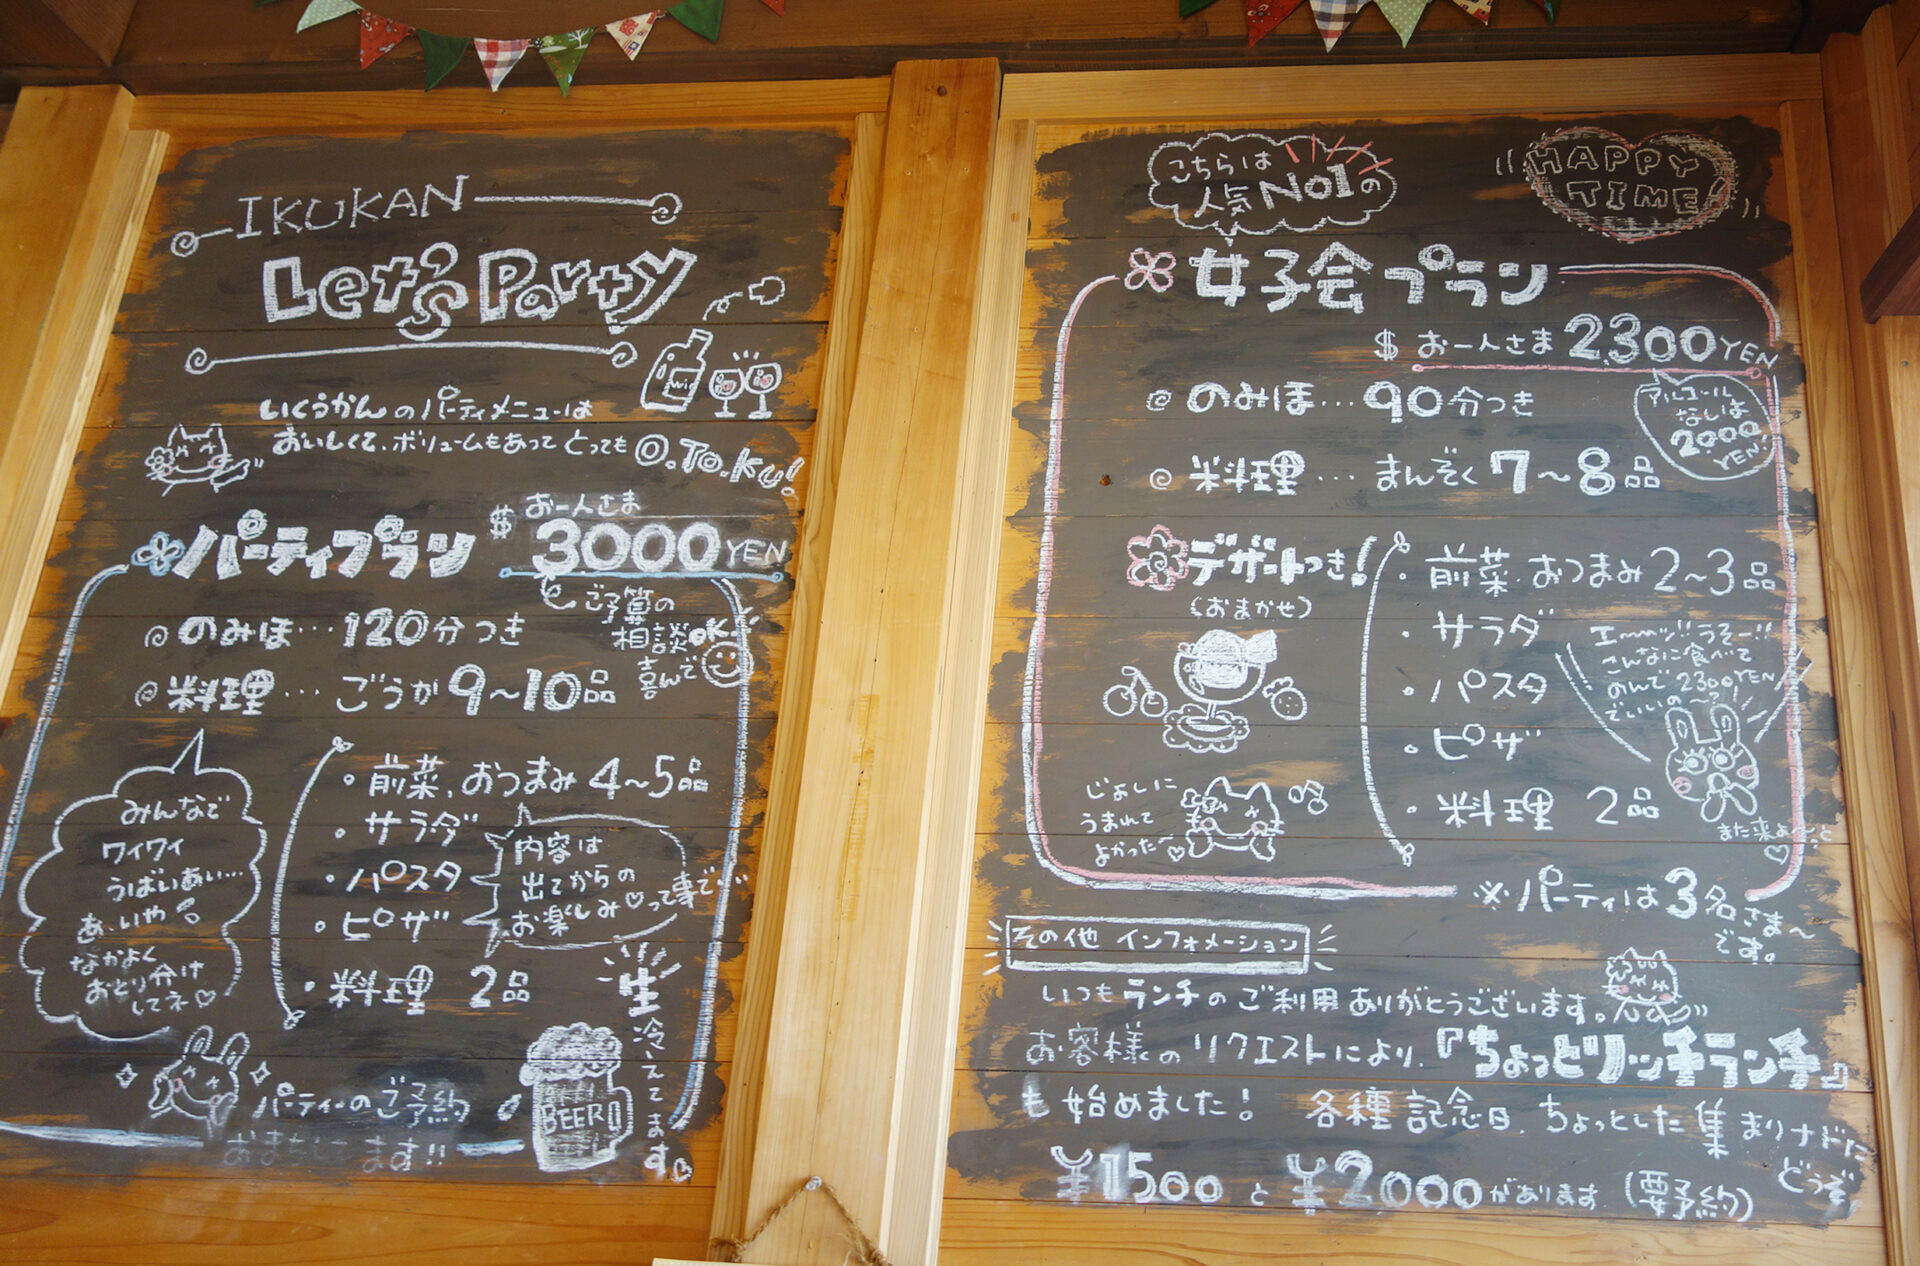 IKUKAN
Let's Party
いくうかんのパーティメニューは
おいしくて、ボリュームもあってとっても O.TO.KU!
パーティプラン $ お一人さま 3000YEN
ご予算の
相談OK
喜んで
のみほ…120分つき
料理…ごうか9〜10品
・前菜、おつまみ4〜5品
・サラダ
・パスタ
・ピザ
・料理 2品
内容は
出てからの
お楽しみ♡って事で…
みんなで
ワイワイ
うばいあい…
あ、いや
なかよく
おとり分け
してネ♡
生
冷えてます
BEER
パーティーのご予約
おまちしてます!!
こちらは
人気No1の
HAPPY
TIME!
女子会プラン
$ お一人さま 2300YEN
アルコール
なしは
2000
YEN!
のみほ…90分つき
料理…まんぞく7〜8品
デザートつき!
(おまかせ)
・前菜、おつまみ2〜3品
・サラダ
・パスタ
・ピザ
・料理 2品
エーッ!!うそー!!
こんなに食べて
のんで2300YEN
でいいの〜?!
また来よ〜っと
♡
じょしに
うまれて
よかった〜♡
※パーティは3名さま〜
です。
その他 インフォメーション
いつもランチのご利用ありがとうございます。
お客様のリクエストにより、『ちょっとリッチランチ』
も始めました! 各種記念日、ちょっとした集まりナドに
どうぞ
¥1500と¥2,000があります(要予約)